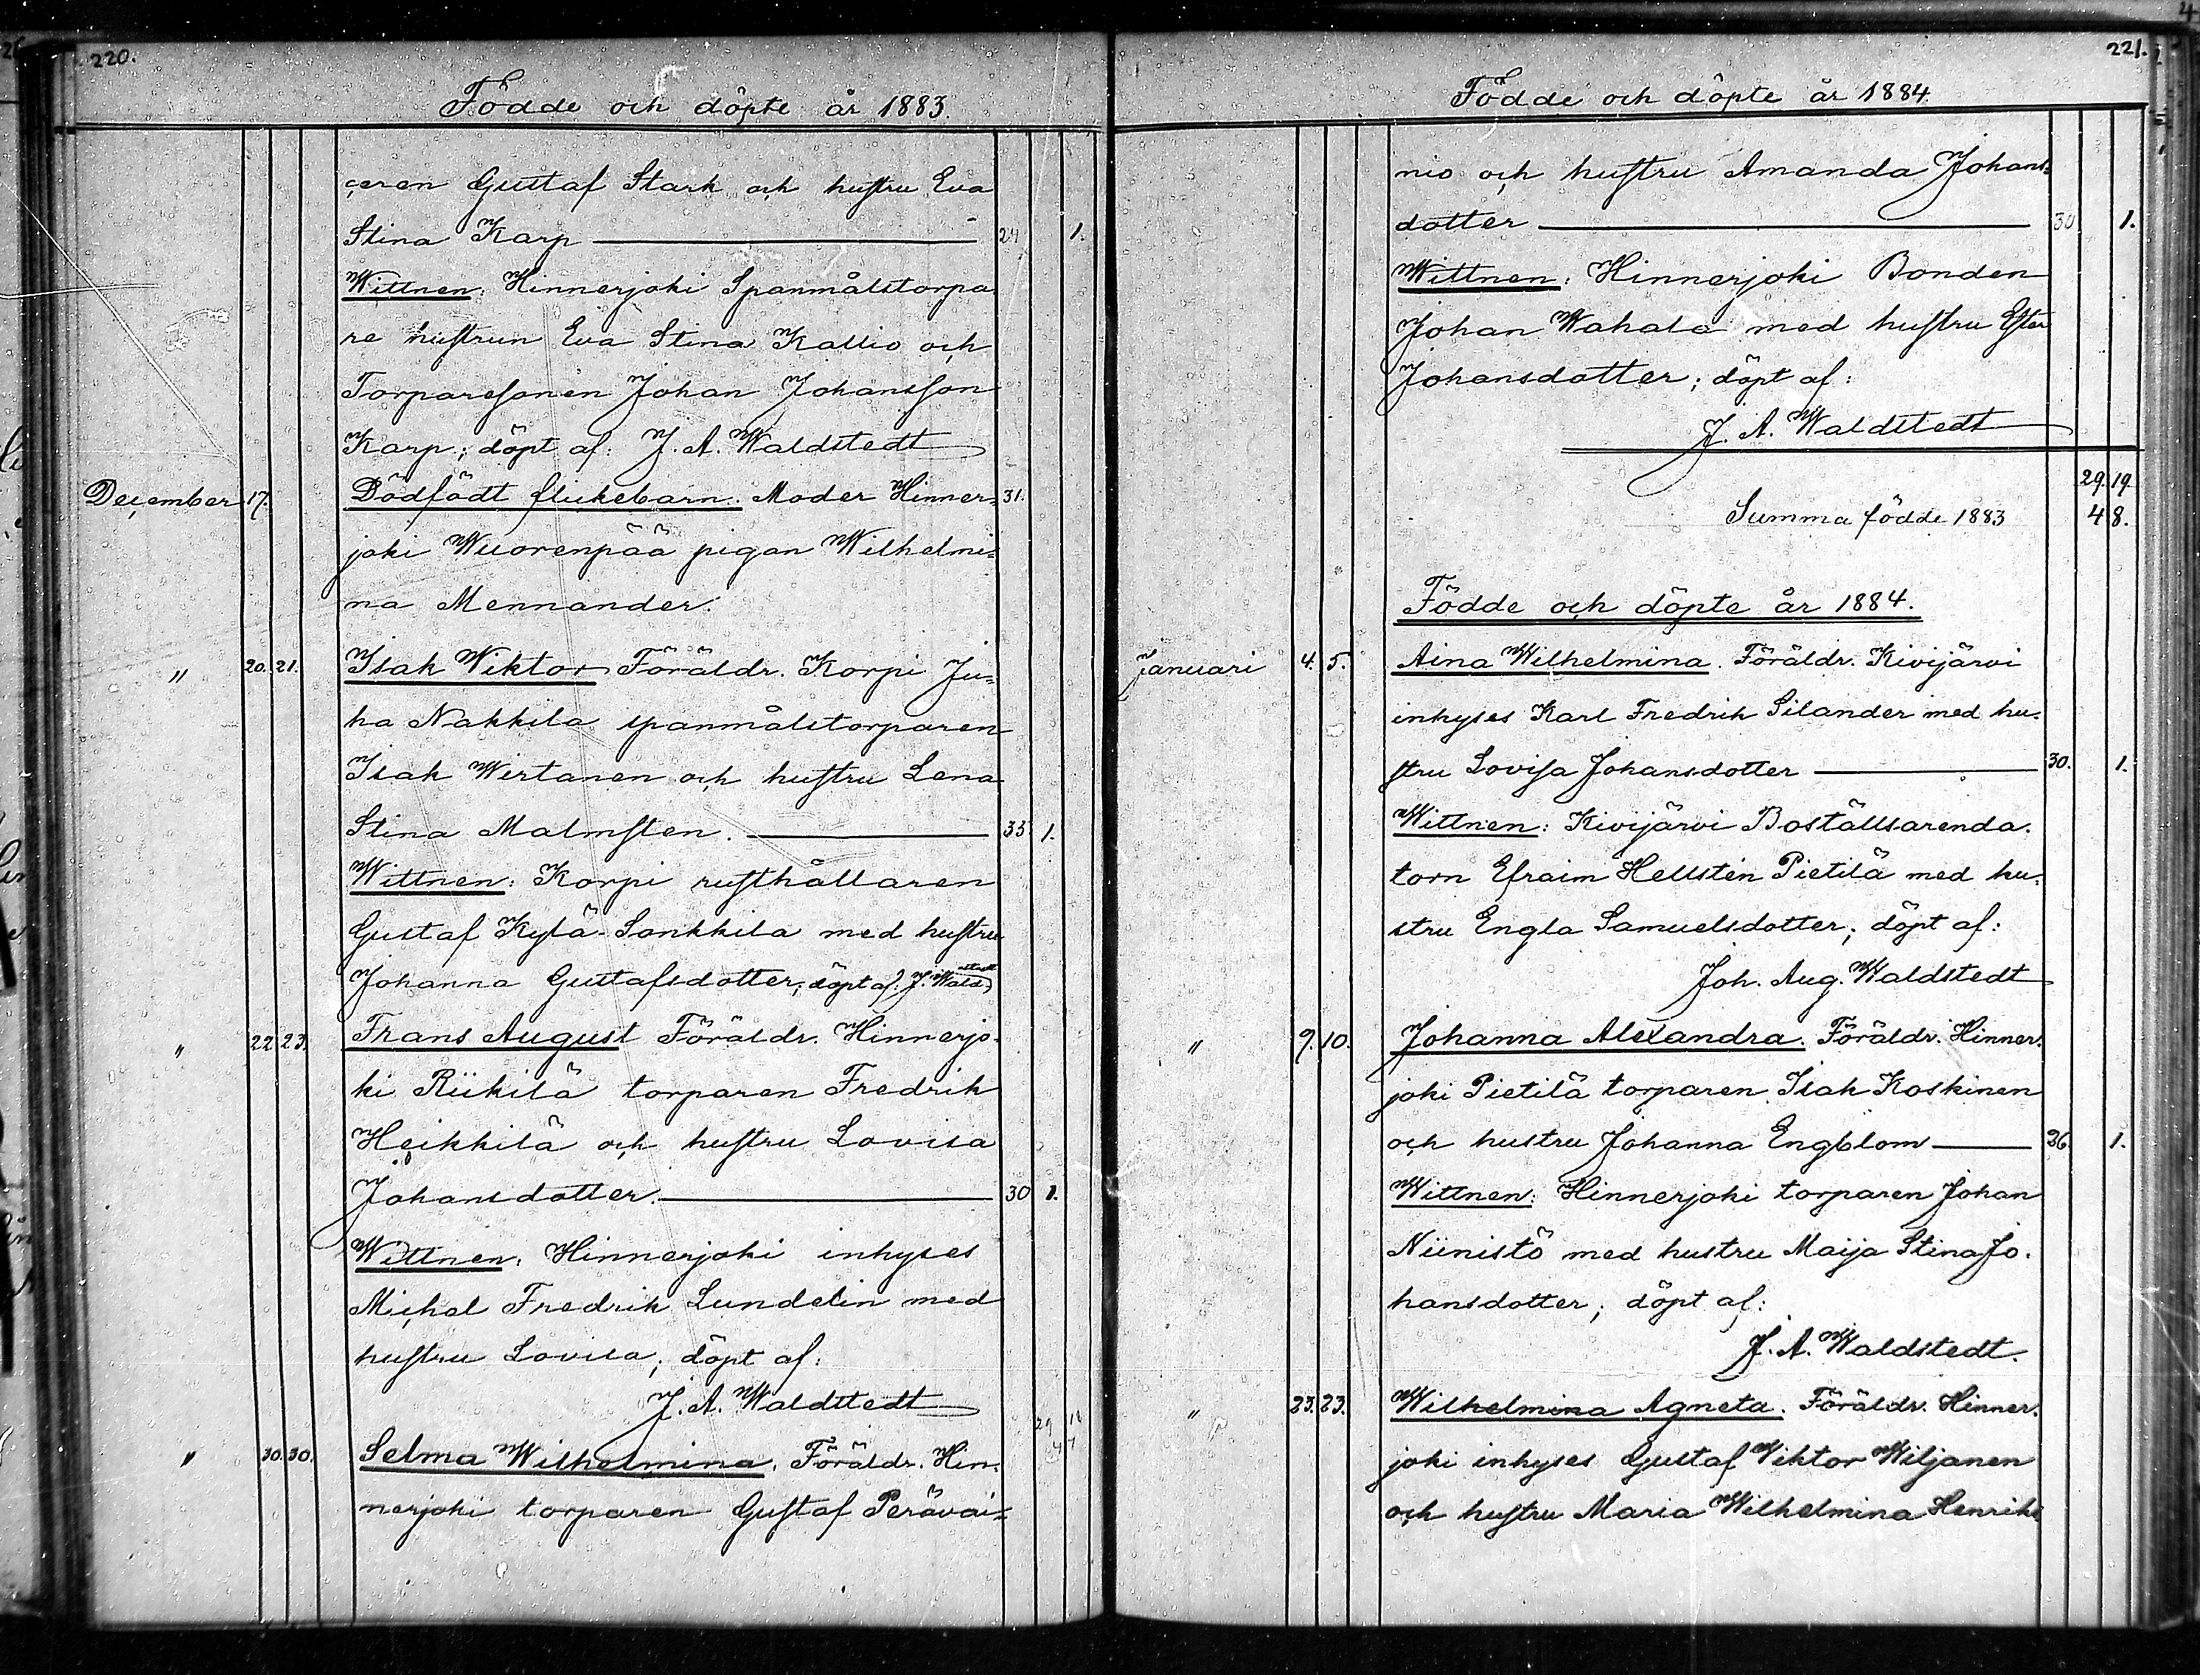 220.
Födde och döpte år 1883.
çeren Gustaf Stark och hustru Eva
Stina Karp 24 1.
Wittnen. Hinnerjoki Spanmålstorpa
re hustrun Eva Stina Kallio och
Torparesonen Johan Johansson
Karp; döpt af: J. A. Waldstedt
December 17. Dödfödt flickebarn. Moder Hinner- 31.
joki Wuorenpää pigan Wilhelmi=
na Mennander.
" 20. 21. Isak Wiktor Föräldr. Korpi Ju=
ha Nakkila spanmålstorparen
Isak Wirtanen och hustru Lena
Stina Malmsten. 35 1.
Wittnen: Korpi rusthållaren
Gustaf Kylä-Sonkkila med hustru
Johanna Gustafsdotter; döpt af: J. Waldstedt
" 22. 23. Frans August Föräldr. Hinnerjo-
ki Riikilä torparen Fredrik
Heikkilä och hustru Lovisa
Johansdotter. 30 1.
Wittnen: Hinnerjoki inhyses
Michal Fredrik Lundelin med
hustru Lovisa; döpt af:
J. A. Waldstedt
" 30. 30. Selma Wilhelmina. Föräldr. Hin-
nerjoki torparen Gustaf Perävai=
221.
Födde och döpte år 1884.
nio och hustru Amanda Johans=
dotter 30 1.
Wittnen: Hinnerjoki Bonden
Johan Wahala med hustru Ester
Johansdotter; döpt af:
J. A. Waldstedt
29. 19.
Summa födde 1883 48.
Födde och döpte år 1884.
Januari 4. 5. Aina Wilhelmina. Föräldr. Kivijärvi
inhyses Karl Fredrik Silander med hu-
stru Lovisa Johansdotter 30. 1.
Wittnen: Kivijärvi Boställsarenda-
torn Efraim Hellstén Pietilä med hu-
stru Engla Samuelsdotter; döpt af:
Joh. Aug. Waldstedt
" 9. 10. Johanna Alexandra. Föräldr. Hinner-
joki Pietilä torparen Isak Koskinen
och hustru Johanna Engblom 26. 1.
Wittnen: Hinnerjoki torparen Johan
Niinistö med hustru Maija Stina Jo-
hansdotter; döpt af:
J. A. Waldstedt.
" 23. 23. Wilhelmina Agneta. Föräldr. Hinner-
joki inhyses Gustaf Viktor Wiljanen
och hustru Maria Wilhelmina Henriks